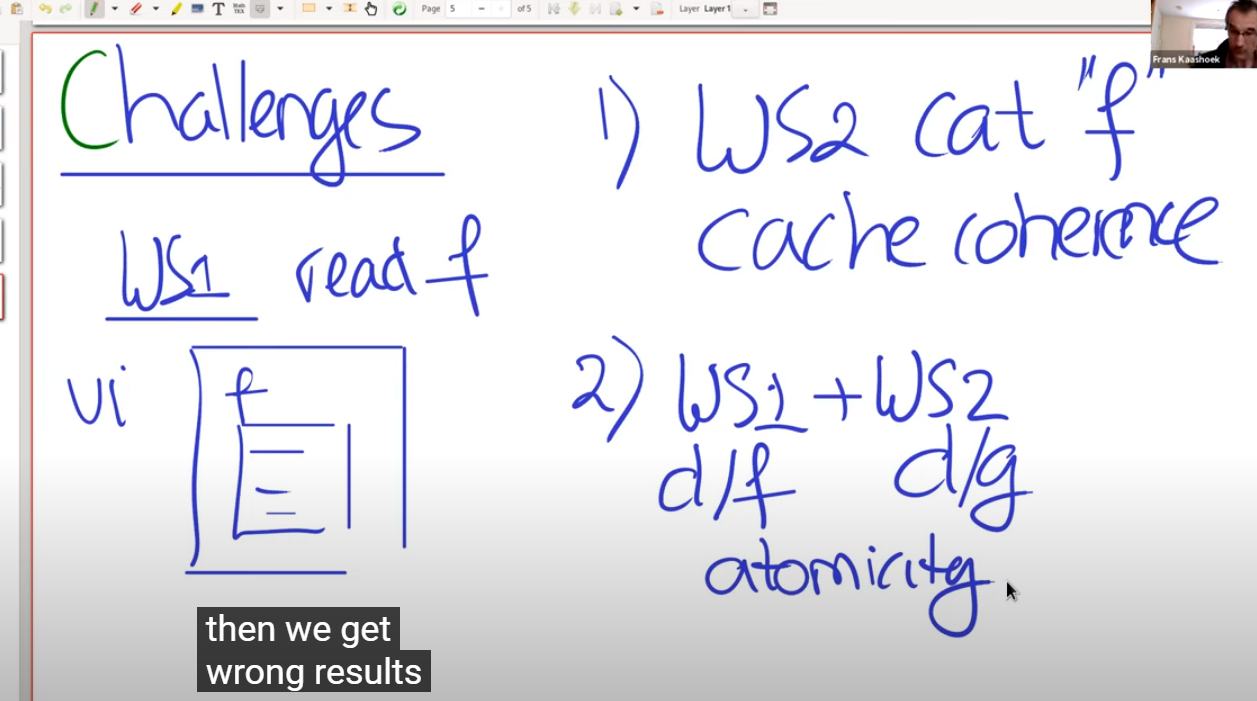 Page 5 of 5 Layer Layer 1
Frans Kaashoek
Challenges
WS1 read f
vi
f
1) WS2 cat "f"
cache coherence
2) WS1 + WS2
d/f d/g
atomicity
then we get
wrong results